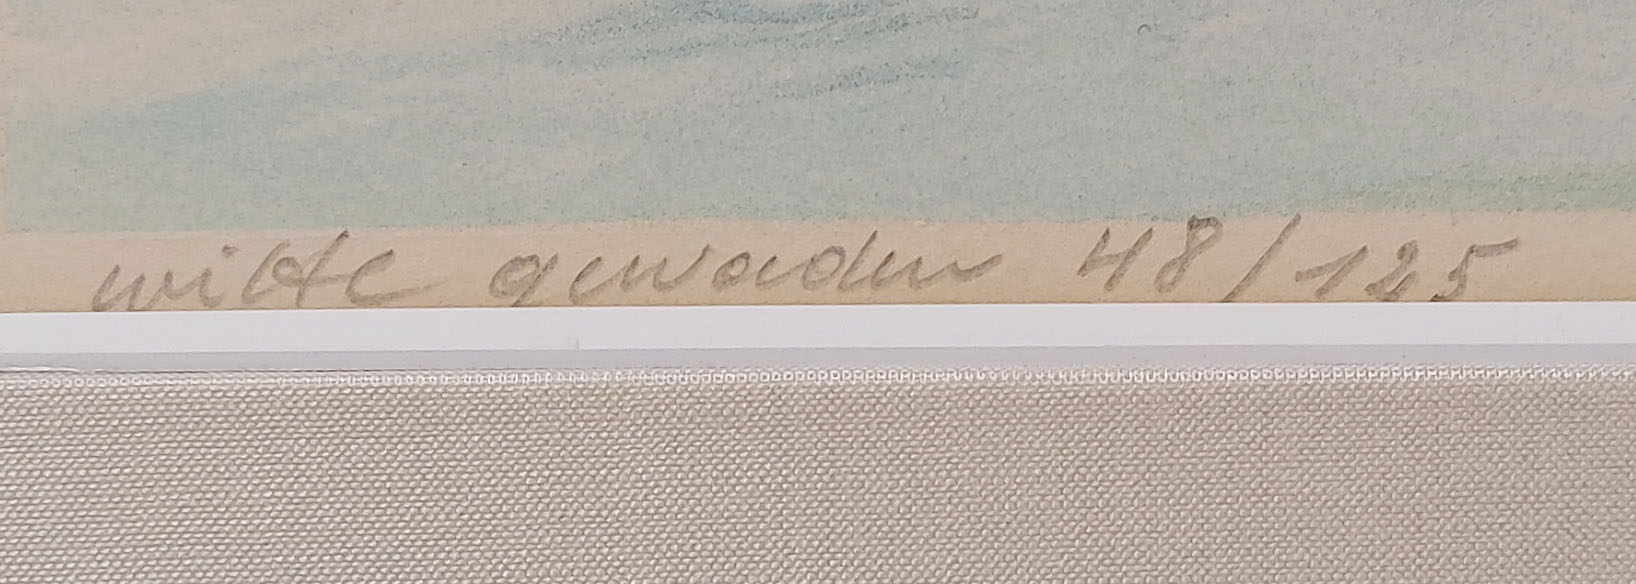 witte gewaden 48/125